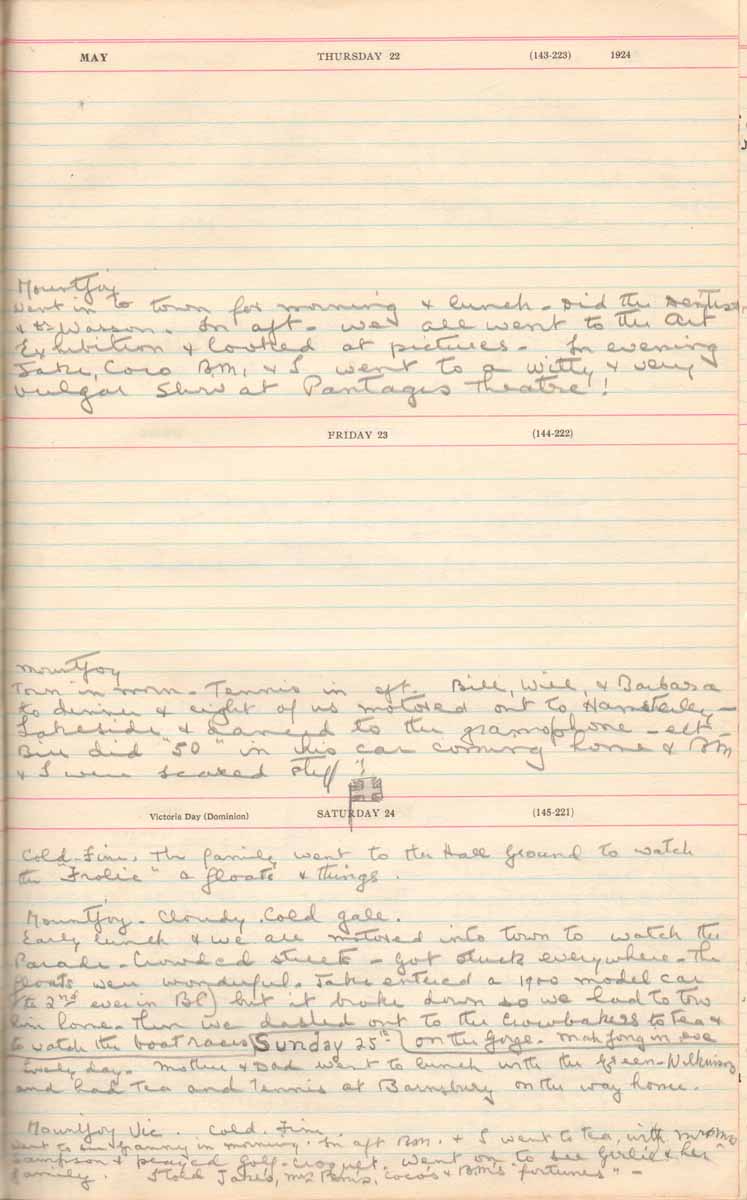 MAY THURSDAY 22 (143-223) 1924
Mountjoy
Went in to town for morning & lunch - Did the Dentist,
& Watson. In aft - we all went to the Art
Exhibition & looked at pictures - In evening
Jake, Coco B.M, & I went to a witty & very
vulgar show at Pantages Theatre!
FRIDAY 23 (144-222)
Mountjoy
Town in morn - Tennis in aft. Bill, Will, & Barbara
to dinner & eight of us motored out to Hamsterley -
Lakeside & danced to the gramophone - ect -
Bill did "50" in his car coming home & BM
& I were scared stiff!
Victoria Day (Dominion) SATURDAY 24 (145-221)
Cold - Fine. The family went to the Hall Ground to watch
the "Frolic" a floats & things.
Mountjoy - Cloudy. Cold gale.
Early lunch & we all motored into town to watch the
Parade - Crowded streets - got stuck everywhere - The
floats were wonderful. Jake entered a 1900 model car
(the 2nd ever in BC) but it broke down so we had to tow
him home - Then we dashed out to the Crowbakers to tea &
to watch the boat races on the Gorge. Mah Jong in eve
Sunday 25th
Lovely day. Mother & Dad went to lunch with the Green-Wilkinsons
and had tea and Tennis at Barnsbury on the way home.
Mountjoy Vic. Cold. Fine
Went to see Granny in morning. In aft BM. & I went to tea, with Mr & Mrs
Sampson & played golf-croquet. Went on to see Girlie & her
family. I told Jake's, Coco's & BM's "fortunes" -